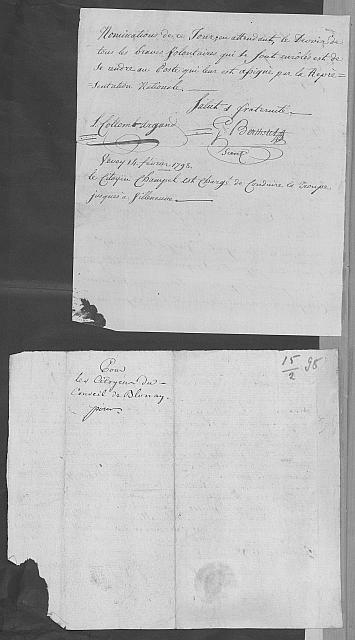 Nominations de ce Jour, en attendant, le Devoir de
tous les braves Volontaires qui se sont enrôlés est de
se rendre au Poste qui leur est assigné par la Repré=
sentation Nationale.
Salut & fraternité.
L. Collomb
Berthold
Vevey 14. févrer 1798.
le Citoyen est Chargé de Conduire la Troupe
jusques à Villeneuve.
Pour
les Citoyens du
Conseil de Blonay.
pour
15/2 98